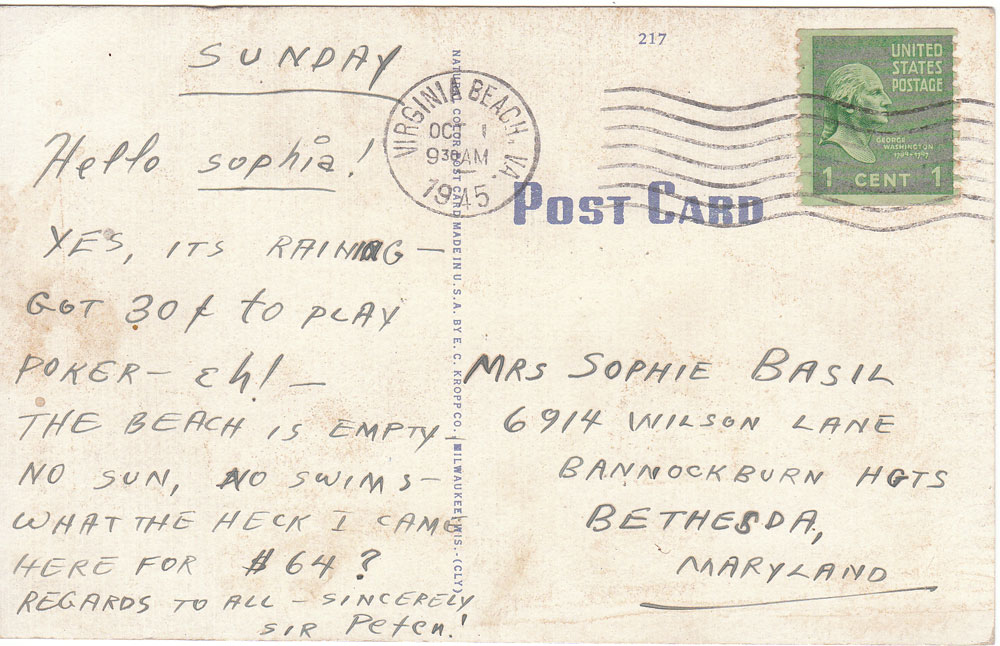 SUNDAY
Hello sophia!
YES, ITS RAINING —
GOT 30¢ to PLAY
POKER — Eh! —
THE BEACH IS EMPTY —
NO SUN, NO SWIMS —
WHAT THE HECK I CAME
HERE FOR $64?
REGARDS TO ALL — SINCERELY
SIR Peter!
NATURAL COLOR POST CARD MADE IN U.S.A. BY E. C. KROPP CO., MILWAUKEE, WIS. - (CLY)
VIRGINIA BEACH, VA.
OCT 1
9 30 AM
1945
217
POST CARD
UNITED
STATES
POSTAGE
GEORGE
WASHINGTON
1789-1797
1 CENT 1
MRS SOPHIE BASIL
6914 WILSON LANE
BANNOCKBURN HGTS
BETHESDA,
MARYLAND